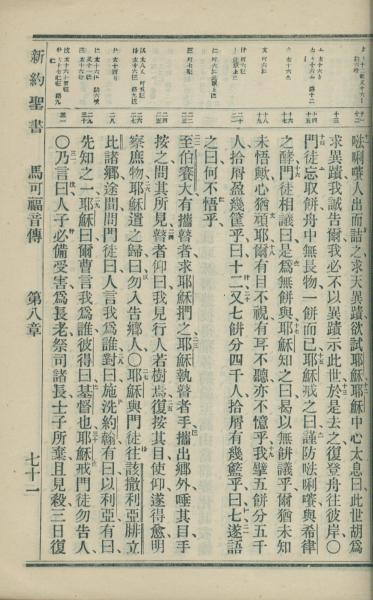 㗲唎㘔人出而詰之求天異蹟欲試耶穌耶穌中心太息曰此世胡爲
求異蹟我誠告爾我必不以異蹟示此世於是去之復登舟往彼岸〇
門徒忘取餅舟中無長物一餅而已耶穌戒之曰謹防㗲唎㘔與希律
之酵門徒相議曰是爲無餅與耶穌知之曰曷以無餅議乎爾猶未知
未悟厥心猶頑耶爾有目不視有耳不聽亦不憶乎我擘五餅分五千
人拾屑盈幾筐乎曰十二又七餅分四千人拾屑有幾籃乎曰七遂語
之曰何不悟乎
至伯賽大有攜瞽者求耶穌捫之耶穌執瞽者手攜出鄉外唾其目手
按之問其所見瞽者仰曰我見行人若樹焉復按其目使仰遂得愈明
察庶物耶穌遣之歸曰勿入告鄉人〇耶穌與門徒往該撒利亞腓立
比諸鄉途間問門徒曰人言我爲誰對曰施洗約翰有曰以利亞有曰
先知之一耶穌曰爾曹言我爲誰彼得曰基督也耶穌戒門徒勿告人
〇乃言曰人子必備受害爲長老祭司諸長士子所棄且見殺三日復
新約聖書 馬可福音傳 第八章 七十一